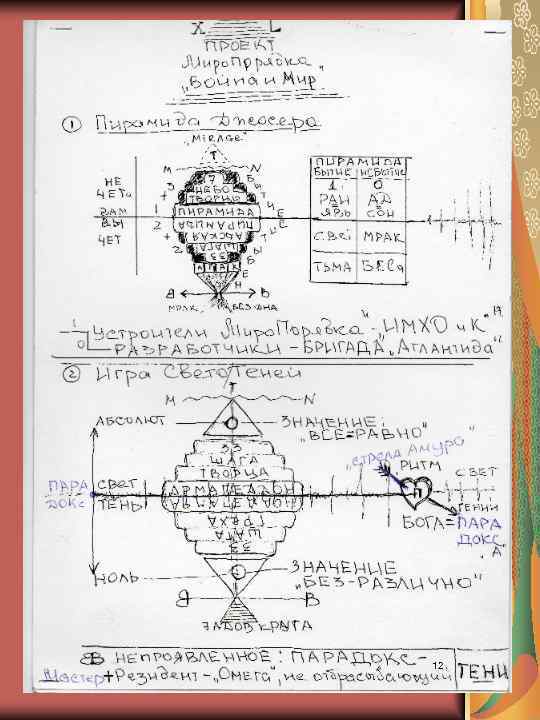 X L
ПРОЕКТ
МироПорядка
"Война и Мир"
1 Пирамида Джосера
"MiRAGe"
T
M N
7
НЕБО
ТВОРНЫ
НЕ ЧЕТ
1 ПИРАМИДА
2 ПИРАМИДА
ЧЕТ
АДСКАЯ
ШАГА
33
А Т А К
Я В
МРАК БЕЗДНА
ПИРАМИДА
БЫТИЕ НЕБЫТИЕ
1 0
РАЙ АД
ЯВЬ СОН
СВЕТ МРАК
ТЬМА БЕС
1 Устроители МироПорядка - "ИМХО и К"
0 РАЗРАБОТЧИКИ - БРИГАДА "Атлантида"
2 Игра СветоТеней
T
M N
АБСОЛЮТ
ЗНАЧЕНИЕ:
"ВСЕ=РАВНО"
33
ШАГА
ТВОРЦА
"стрела Амура"
РИТМ
СВЕТ
ПАРАДОКС
СВЕТ
ТЕНЬ
АРМАГЕДДОН
АРМАГЕДДОН
П
ГЕНИИ
ГРЕХА
ШАГА
33
БОГА=ПАРА
ДОКС
"А"
НОЛЬ
ЗНАЧЕНИЕ
"БЕЗ-РАЗЛИЧНО"
Я В
ЗАДОВ КРУГА
НЕПРОЯВЛЕННОЕ: ПАРАДОКС-
12
Мастер+Резидент-"Омега", не отбрасывающий ТЕНИ